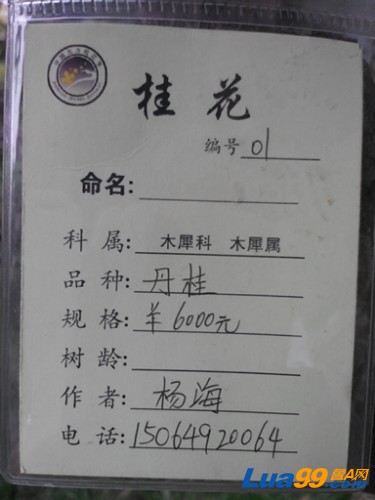 桂花
编号 01
命名:
科属: 木犀科 木犀属
品种: 丹桂
规格: 羊6000元
树龄:
作者: 杨海
电话: 15064920064
Lua99